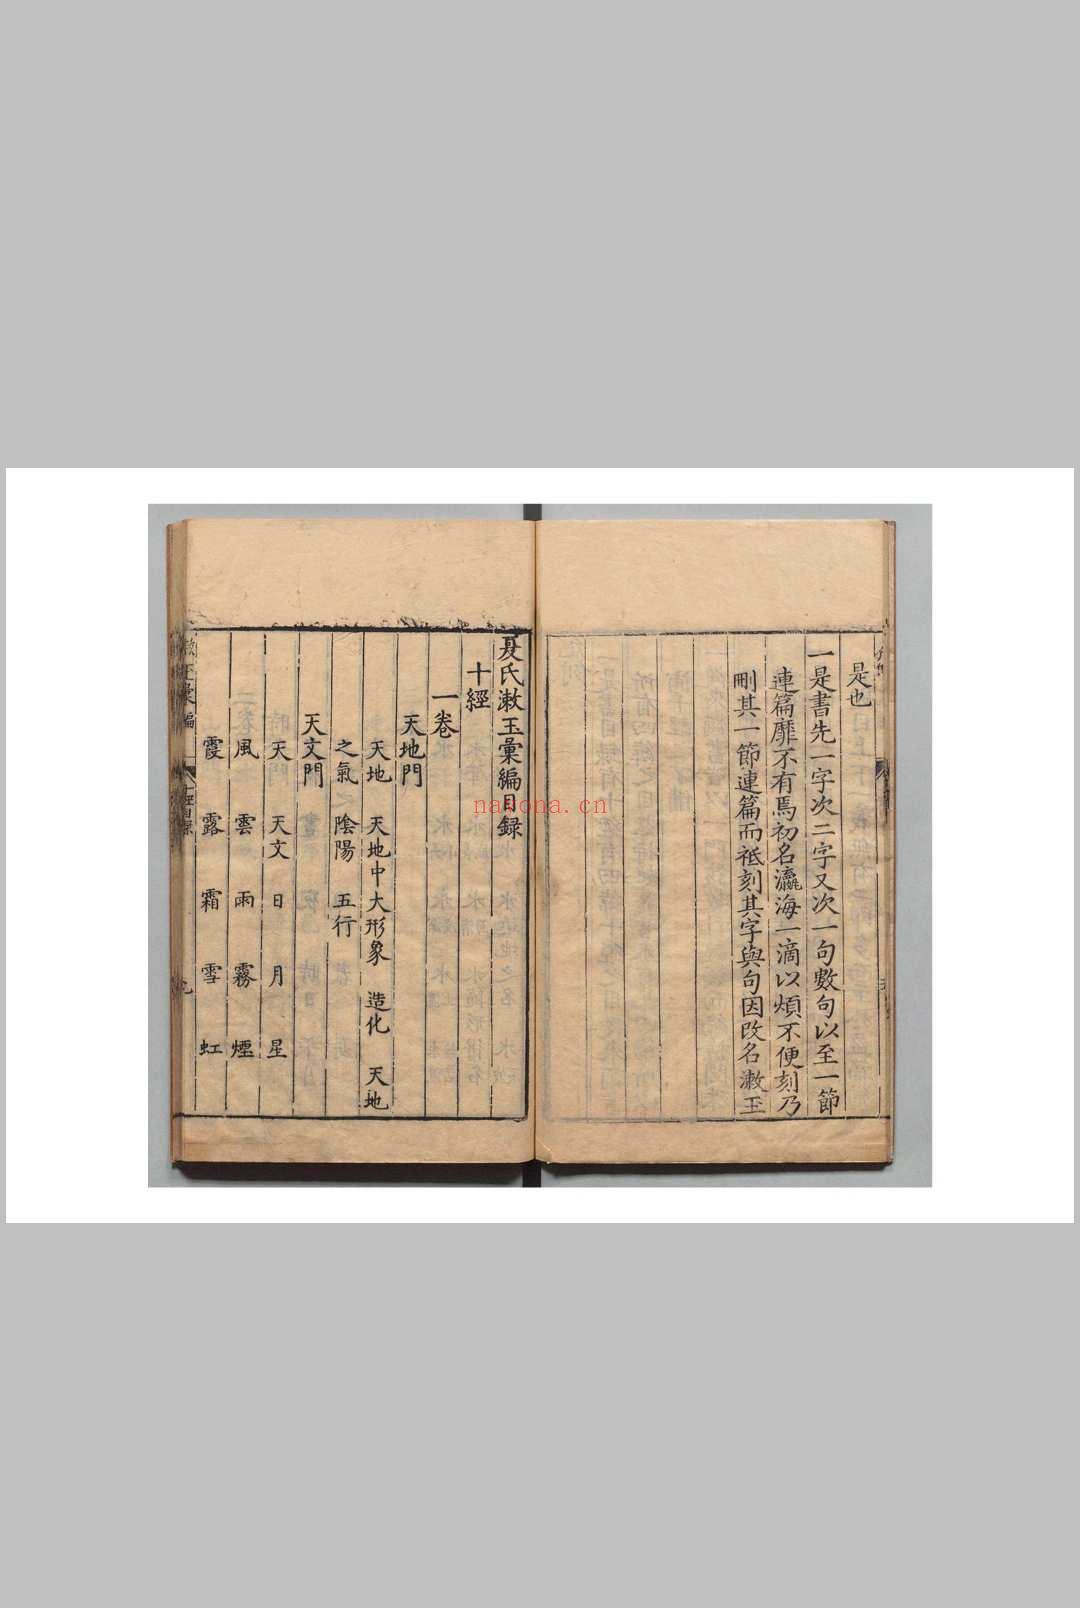 是也
一是書先一字次二字又次一句數句以至一節
連篇靡不有焉初名瀛海一滴以煩不便刻乃
刪其一節連篇而祗刻其字與句因改名潄玉
夏氏潄玉彙編目録
十經
一卷
天地門
天地 天地中大形象 造化 天地
之氣 陰陽 五行
天文門
天 天文 日 月 星
風 雲 雨 霧 煙
霞 露 霜 雪 虹
潄玉彙編
navona.cn